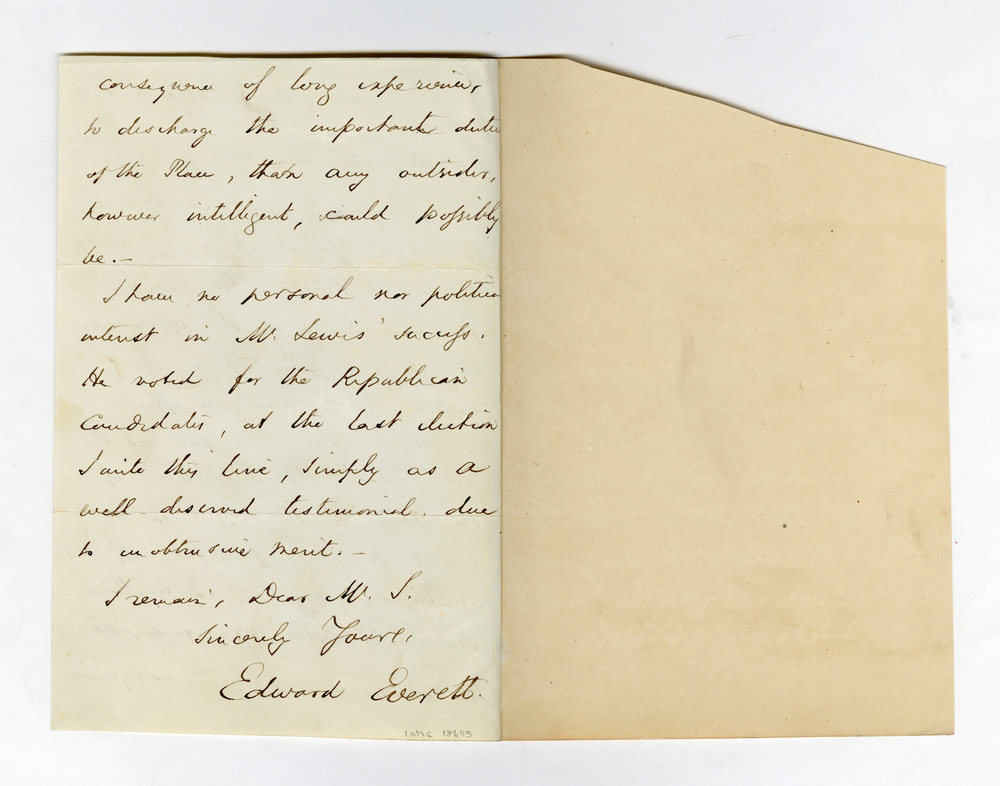 consequence of long experience,
to discharge the important dutie
of the Place, than any outsider,
however intelligent, could possibly
be. –
I have no personal nor politica
interest in Mr. Lewis' success.
He voted for the Republican
Candidates, at the last election
I write this line, simply as a
well deserved testimonial, due
to unobtrusive merit. –
I remain, Dear Mr. S.
Sincerely Yours,
Edward Everett.
18643